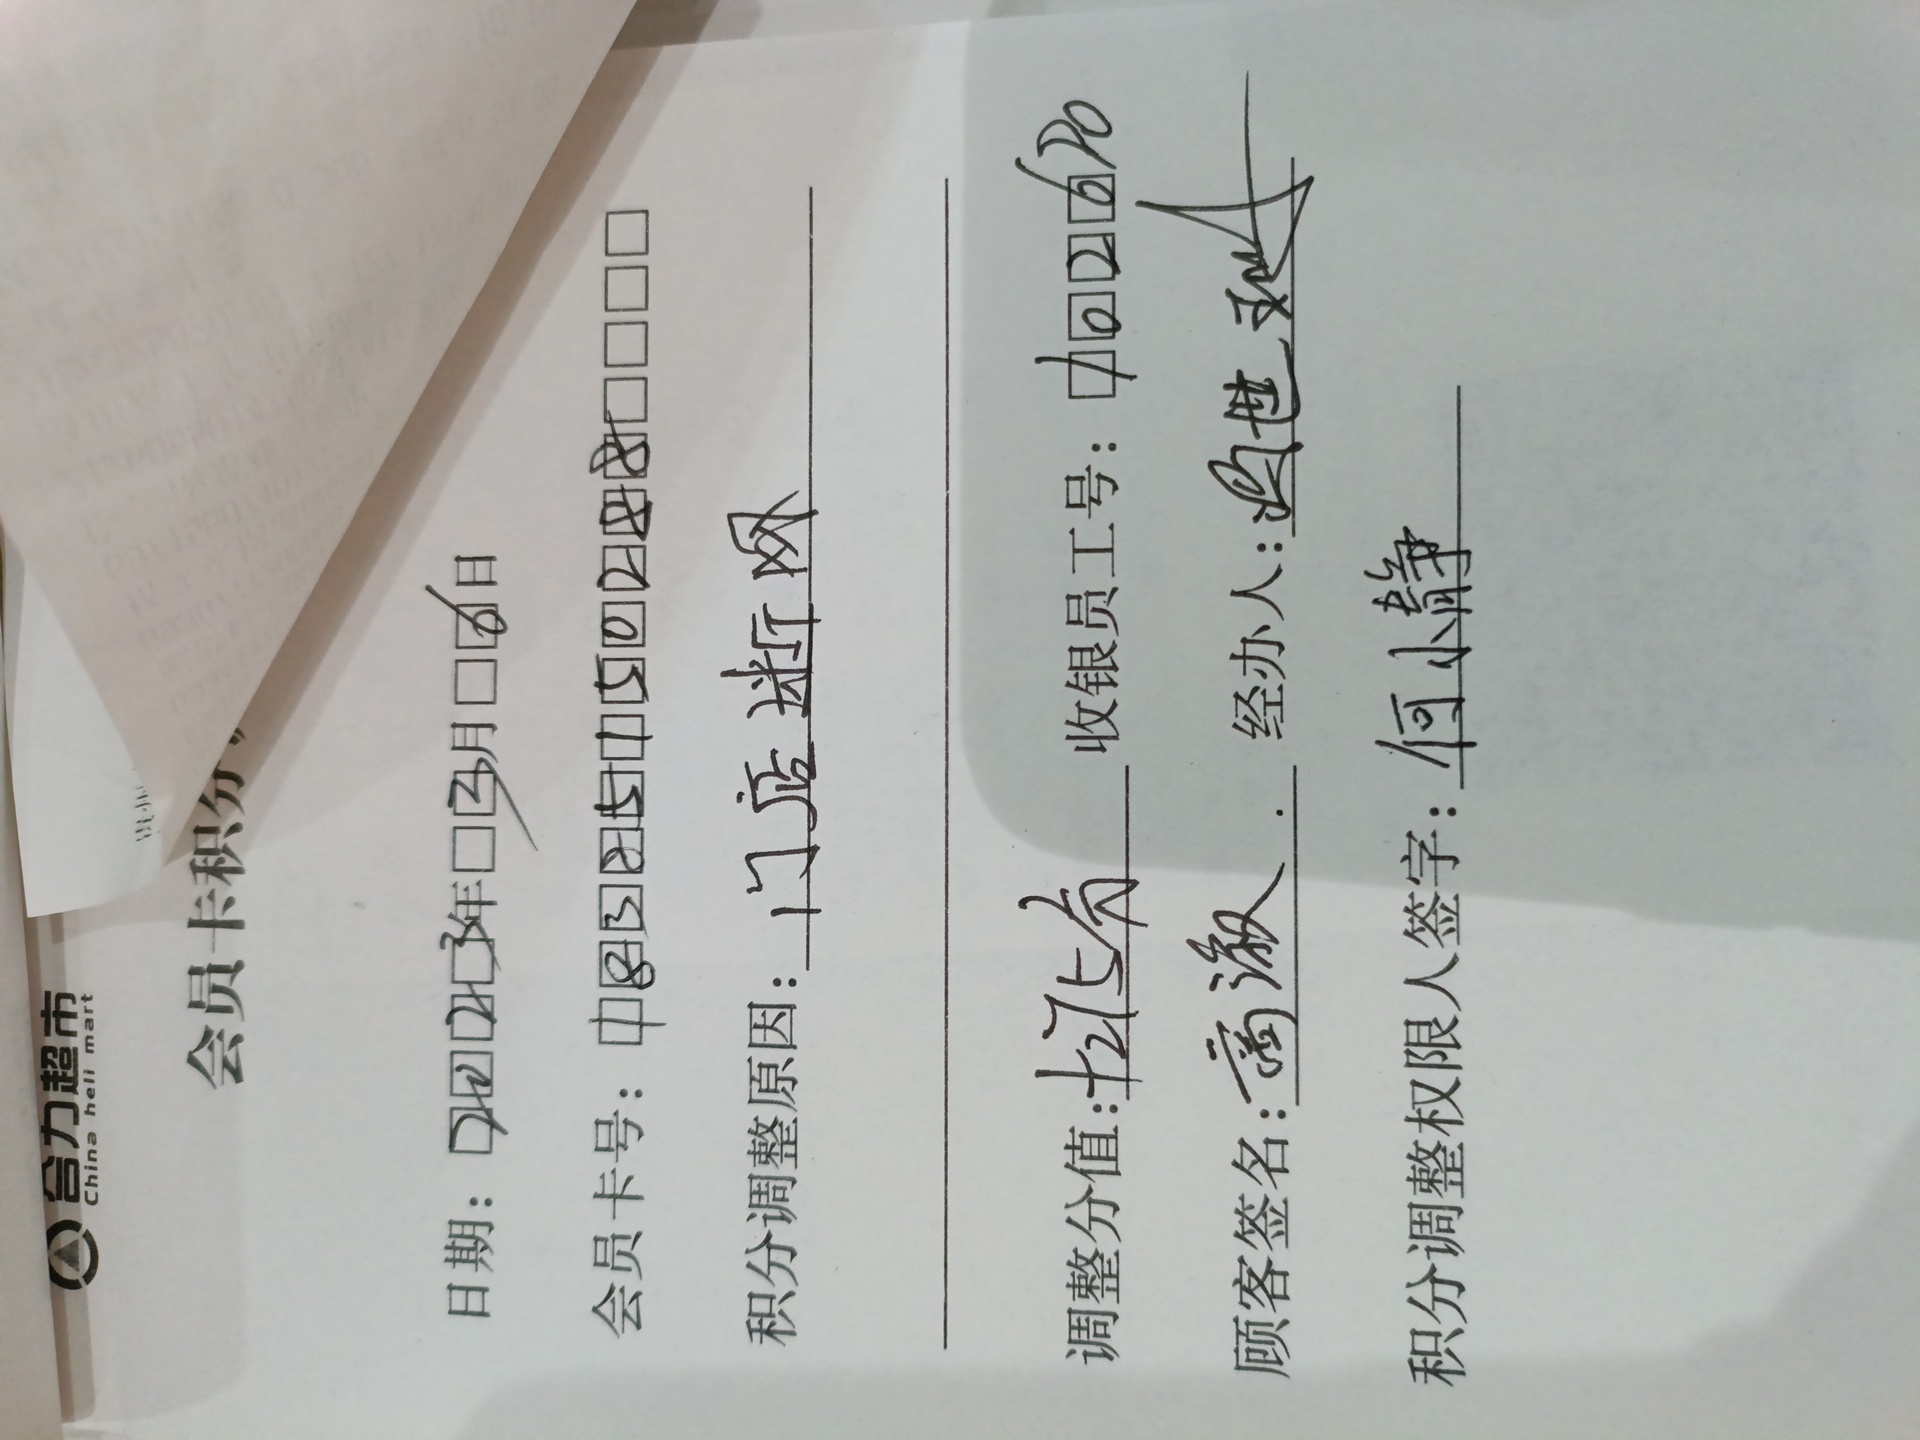 合力超市
China heli mart
会员卡积分
日期：2023年 3月 6日
会员卡号：1832515022
积分调整原因：门店断网
调整分值：+27分 收银员工号：102670
顾客签名： 经办人：
积分调整权限人签字：何小静